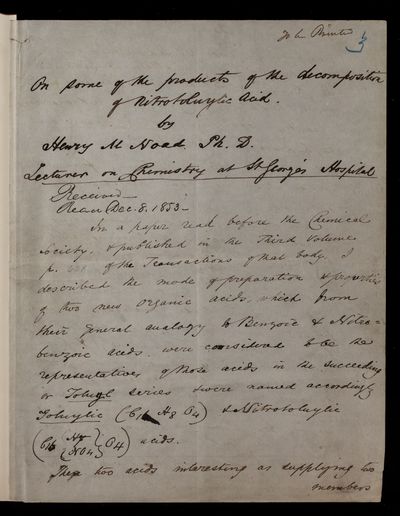 To be Printed 3
On some of the products of the decomposition
of Nitrotoluylic Acid.
by
Henry M Noad Ph. D.
Lecturer on Chemistry at St George's Hospital
Received
Read Dec. 8. 1853 -
In a paper read before the Chemical
Society, & published in the Third Volume
p. of the Transactions of that body, I
described the mode of preparation & properties
of two new organic acids, which from
their general analogy to Benzoic & Nitro-
benzoic acids, were considered to be the
representatives of those acids in the succeeding
or Toluyl series & were named accordingly
Toluylic (C16 H8 O4) & Nitrotoluylic
(C16 {H7 NO4} O4) acids.
These two acids interesting as supplying two
members